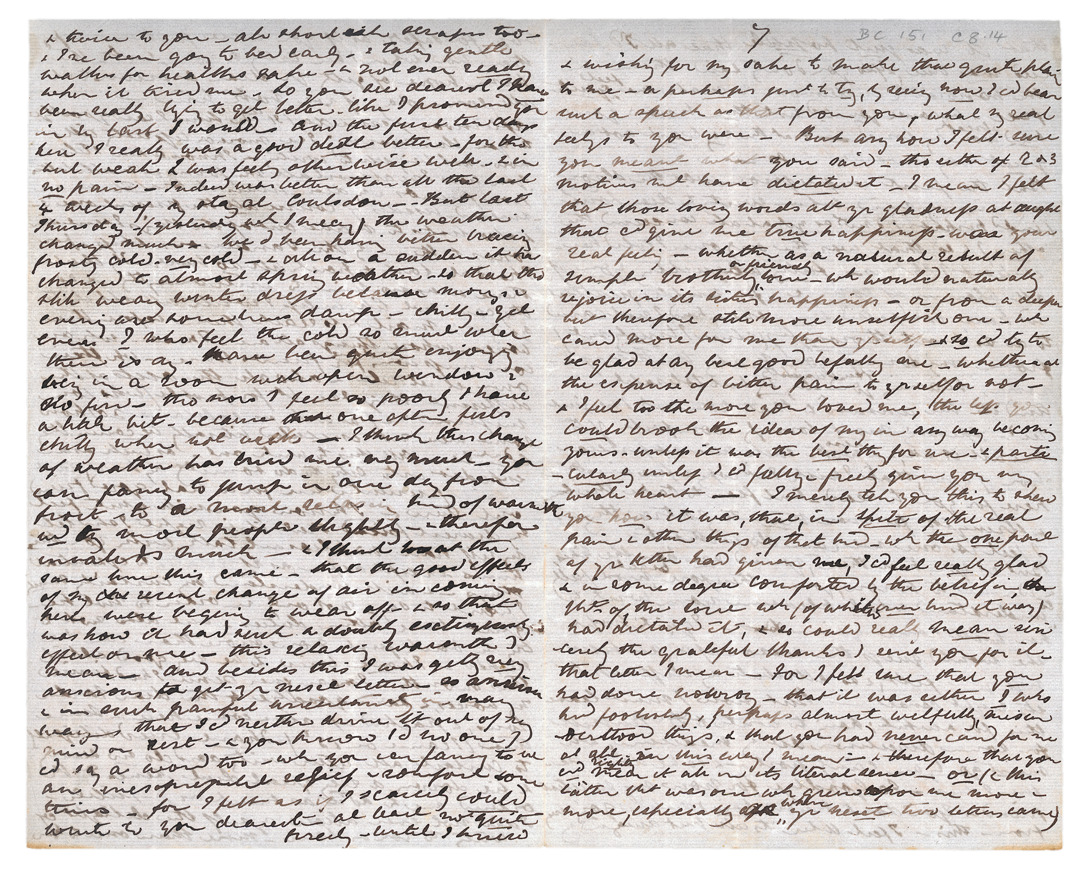 & twice to you - ah short scraps too -
& I've been going to bed early - & taking gentle
walks for healths sake - & not ever reading
when it tired me - So you see dearest I have
been really trying to get better - like I promised you
in my last I would - and the first ten days
here I really was a good deal better - for tho
but weak I was feeling otherwise well - & in
no pain - Indeed was better than all the last
4 weeks of my stay at Coulsdon - But last
Thursday - (yesterday wk I mean) the weather
changed much - We'd been having bitter bracing
frosty cold - very cold - & all on a sudden it has
changed to almost spring weather - so that tho
still wearing winter dress because mornings &
evenings are sometimes damp - chilly - yet
even I who feel the cold so much when
there is any - have been quite enjoying
being in a room with open window &
no fire - tho now I feel so poorly I have
a little bit - because one often feels
chilly when not well - I think this change
of weather has tried me very much - you
can fancy - to jump in one day from
frost to a most relaxing kind of warmth
wd try most people slightly - & therefore
invalids much - & I think at the
same time this came - that the good effects
of my recent change of air in coming
here were beginning to wear off - & so that
was how it had such a doubly
effect on me - this relaxing warmth I
mean - And besides this I was getting very
anxious to get yr next letter - so anxious
& in such painful uncertainty in many
ways that I cd neither drive it out of my
mind or rest - & you know I'd no one I
cd say a word too - wh you can fancy to be
an inexpressible relief & comfort some
times - for I felt as if I scarcely could
write to you dearest at least not quite
freely - until I knew
7
BC 151 C8.14
& wishing for my sake to make that quite plain
to me - & perhaps just to try, by seeing how I cd bear
such a speech as that from you, what my real
feelgs to you were - But any how I felt sure
you meant what you said - tho either of 2 or 3
motives mt have dictated it - I mean I felt
that those loving words abt yr gladness at aught
that cd give me true happiness - was your
real feeling - whether as a natural result of
simple brotherly or friendly love - wh would naturally
rejoice in its sister's happiness - or from a deeper
but therefore still more unselfish one - wh
cared more for me than yrself - & so cd try to
be glad at any real good befalling me - whether at
the expense of bitter pain to yrself or not -
& I felt too the more you loved me, the less you
could brook the idea of my in any way becoming
yours - unless it was the best thg for me - & parti
-cularly unless I cd fully & freely give you my
whole heart - I merely tell you this to show
you how it was, that, in spite of the real
pain & other thgs of that kind - wh the one part
of yr letter had given me, I cd feel really glad
& in some degree comforted by the belief in, the
thts of the love wh (of whichever kind it was)
had dictated it, & so could really mean sin
cerely the grateful thanks I sent you for it -
that letter I mean - For I felt sure that you
had done no wrong - that it was either I who
had foolishly, perhaps almost wilfully, misun
derstood things, & that you had never cared for me
at all (in this way I mean) - & therefore that you
cd rightly mean it all in its literal sense - or (& this
latter tht was one wh grew upon me more &
more, especially when yr next two letters came)